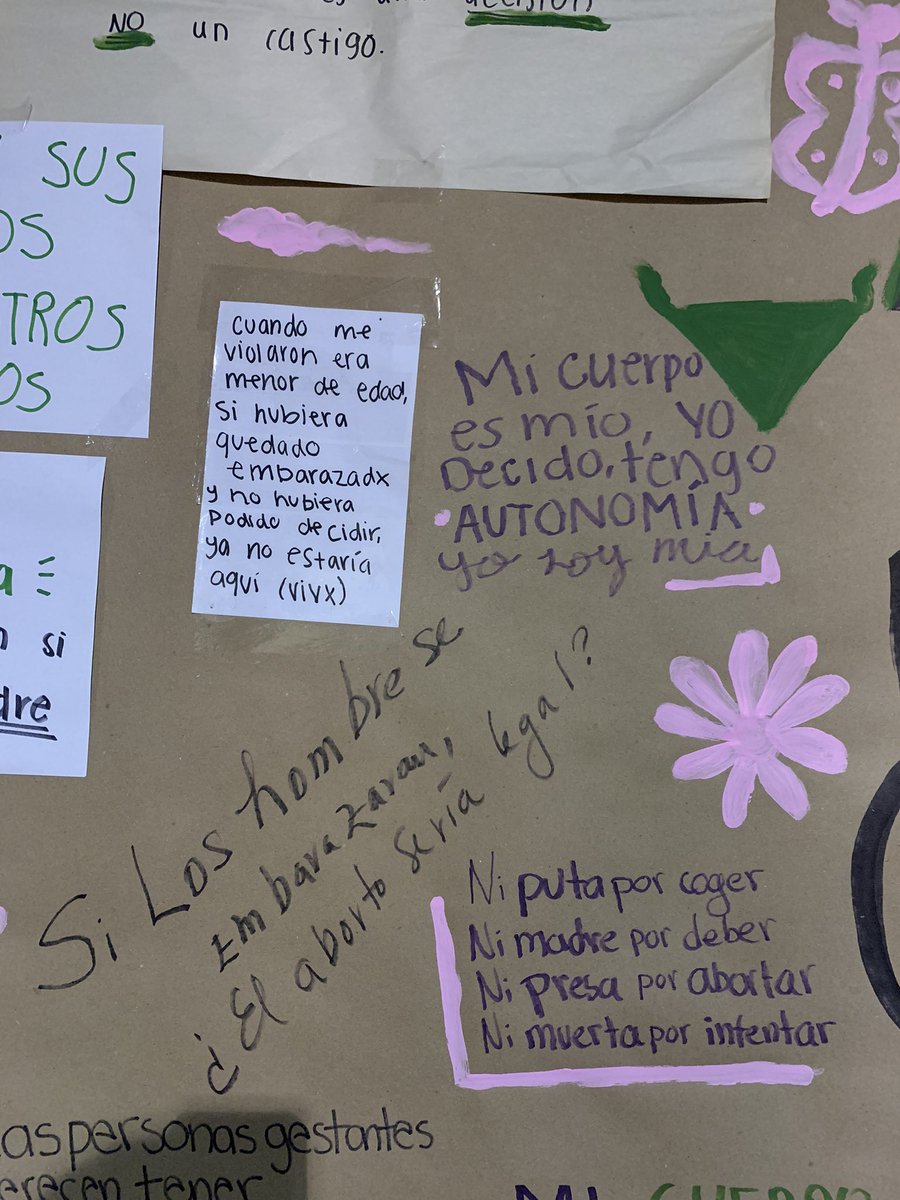 decisión
NO un castigo.
SUS
OS
TROS
OS
a
si
dre
cuando me
violaron era
menor de edad,
si hubiera
quedado
embarazadx
y no hubiera
podido decidir,
ya no estaría
aquí (vivx)
Mi cuerpo
es mío, YO
Decido, tengo
AUTONOMÍA
yo soy mía
Si Los hombre se
Embarazaran,
¿El aborto sería legal?
Ni puta por coger
Ni madre por deber
Ni presa por abortar
Ni muerta por intentar
as personas gestantes
erecen tener
MI CUERPO